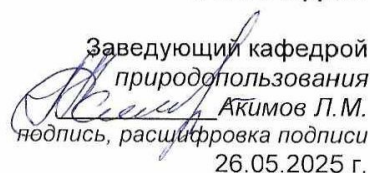 Заведующий кафедрой
природопользования
Акимов Л.М.
подпись, расшифровка подписи
26.05.2025 г.